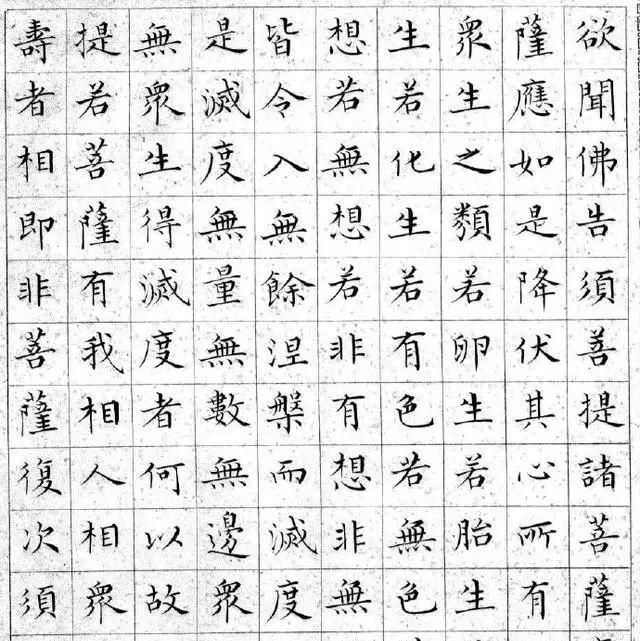 欲聞佛告須善提諸菩薩
薩應如是降伏其心所有
眾生之類若卵生若胎生
生若化生若有色若無色
想若無想若非有想非無
皆令入無餘涅槃而滅度
是滅度無量無數無邊眾
無眾生得滅度者何以故
提若菩薩有我相人相眾
壽者相即非菩薩復次須